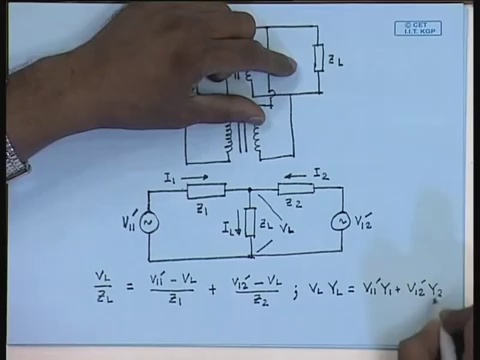 © CET
I.I.T. KGP
ZL
I1 I2
Z1 Z2
V11' IL ZL VL V12'
VL/ZL = (V11' - VL)/Z1 + (V12' - VL)/Z2 ; VL YL = V11' Y1 + V12' Y2